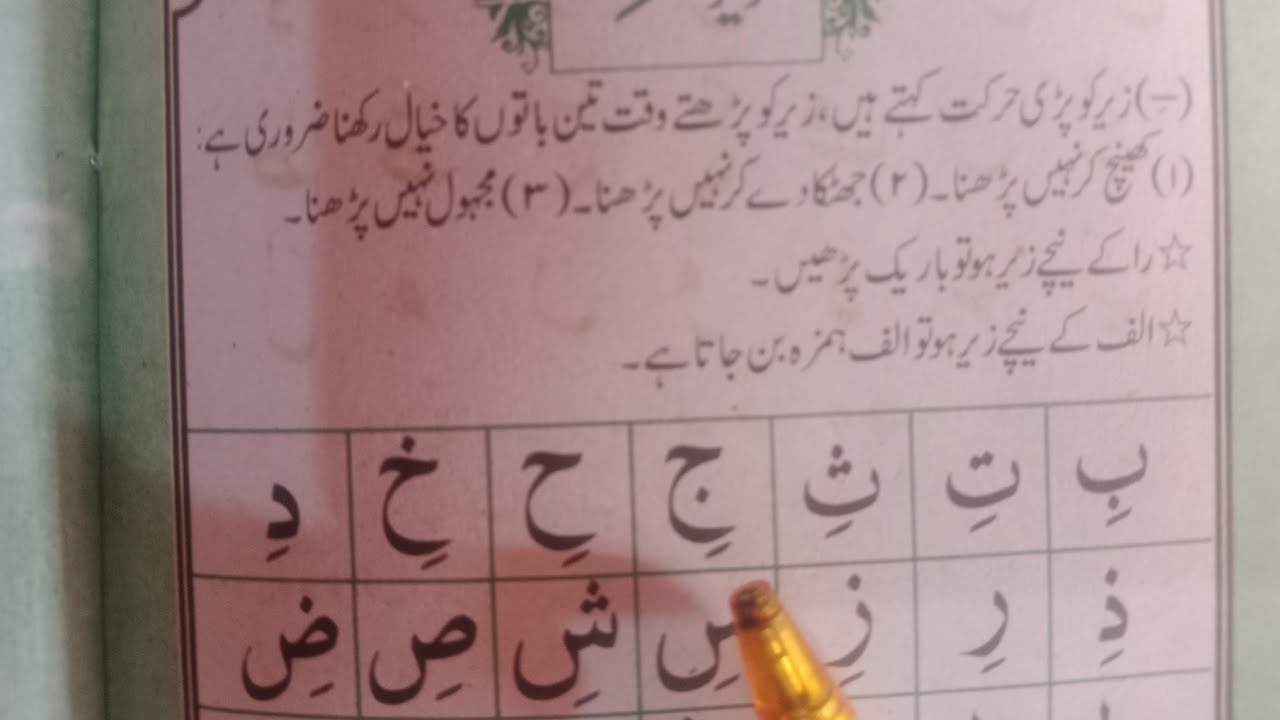 (ـِ) زیر کو پڑی حرکت کہتے ہیں، زیر کو پڑھتے وقت تین باتوں کا خیال رکھنا ضروری ہے:
(۱) کھینچ کر نہیں پڑھنا۔ (۲) جھٹکا دے کر نہیں پڑھنا۔ (۳) مجہول نہیں پڑھنا۔
☆ را کے نیچے زیر ہو تو باریک پڑھیں۔
☆ الف کے نیچے زیر ہو تو الف ہمزہ بن جاتا ہے۔
بِ تِ ثِ جِ حِ خِ دِ
ذِ رِ زِ سِ شِ صِ ضِ